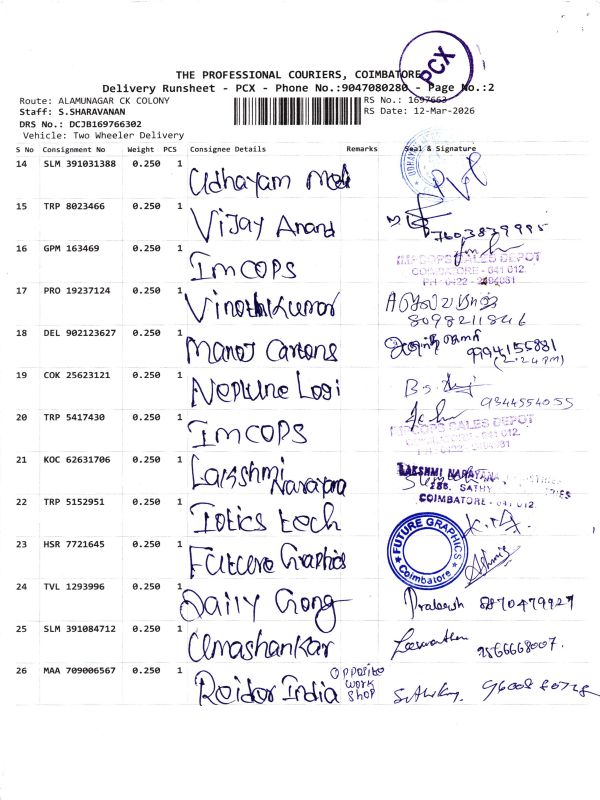 PCX
THE PROFESSIONAL COURIERS, COIMBATORE
Delivery Runsheet - PCX - Phone No.:9047080280 - Page No.:2
Route: ALAMUNAGAR CK COLONY
RS No.: 1697663
Staff: S.SHARAVANAN
RS Date: 12-Mar-2026
DRS No.: DCJB169766302
Vehicle: Two Wheeler Delivery
S No Consignment No Weight PCS Consignee Details Remarks Seal & Signature
14 SLM 391031388 0.250 1 Udhayam
15 TRP 8023466 0.250 1 Vijay Anand 7603839995
16 GPM 163469 0.250 1 Imcops
IMPCOPS SALES DEPOT
COIMBATORE - 641 012.
17 PRO 19237124 0.250 1 VinothKumar
8098211846
18 DEL 902123627 0.250 1 Manoj Cartons 9994155881
(2:24PM)
19 COK 25623121 0.250 1 Neptune Logi 9344554055
20 TRP 5417430 0.250 1 Imcops
IMPCOPS SALES DEPOT
21 KOC 62631706 0.250 1 Lakshmi Narayana
LAKSHMI NARAYANA
288, SATHY
COIMBATORE - 641 012.
22 TRP 5152951 0.250 1 Iotics tech
23 HSR 7721645 0.250 1 Future Graphics
FUTURE GRAPHICS
Coimbatore
24 TVL 1293996 0.250 1 Prakash 8870479927
25 SLM 391084712 0.250 1 Umashankar 9566668007.
26 MAA 709006567 0.250 1 Roider India Opposite work shop